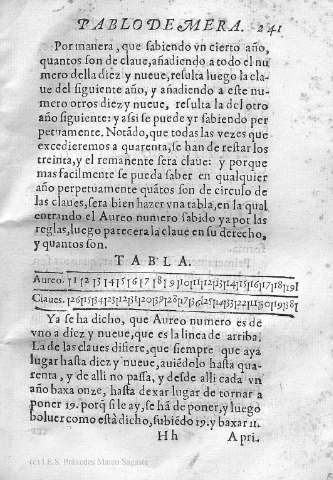 PABLO DE MERA. 241
Por manera, que sabiendo vn cierto año,
quantos son de claue, añadiendo a todo el nu
mero della diez y nueue, resulta luego la cla-
ue del siguiente año, y añadiendo a este nu-
mero otros diez y nueue, resulta la del otro
año siguiente: y assi se puede yr sabiendo per
petuamente. Notãdo, que todas las vezes que
excedieremos a quarenta, se han de restar los
treinta, y el remanente sera claue: y porque
mas facilmente se pueda saber en qualquier
año perpetuamente quãtos son de circulo de
las claues, sera bien hazer vna tabla, en la qual
entrando el Aureo numero sabido ya por las
reglas, luego parecera la claue en su derecho,
y quantos son.
TABLA.
Aureo. 1|2|3|4|5|6|7|8|9|10|11|12|13|14|15|16|17|18|19|
Claues.
Ya se ha dicho, que Aureo numero es de
vno a diez y nueue, que es la linea de arriba.
La de las claues difiere, que siempre que aya
lugar hasta diez y nueue, auiẽdolo hasta qua-
renta, y de alli no passa, y desde alli cada vn
año baxa onze, hasta dexar lugar de tornar a
poner 19. porq̃ si le ay, se hã de poner, y luego
boluer como està dicho, subiẽdo 19. y baxar 11.
Hh Apri.
(c) I.E.S. Práxedes Mateo Sagasta